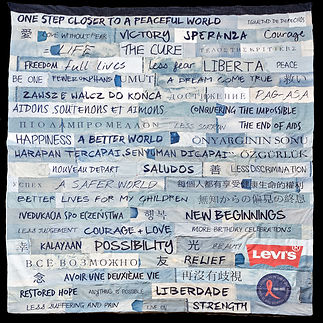 ONE STEP CLOSER TO A PEACEFUL WORLD IGUALTAD DE DERECHOS
愛 LOVE WITHOUT FEAR VICTORY SPERANZA Courage
LIFE THE CURE ΤΕΛΟΣ ΤΗΣ ΚΡΙΤΙΚΗΣ
FREEDOM full lives less fear LIBERTA PEACE
BE ONE FEWER ORPHANS UMUT A DREAM COME TRUE
ZAWSZE WALCZ DO KOŃCA ДОСТИЖЕНИЕ PAG-ASA
AIDONS SOUTENONS ET AIMONS CONQUERING THE IMPOSSIBLE
LESS SORROW THE END OF AIDS
HAPPINESS A BETTER WORLD ÖNYARGININ SONU
HARAPAN TERCAPAI, SENYUMAN DICAPAI ÖZGÜRLÜK
NOUVEAU DEPART SALUDOS 善 LESS DISCRIMINATION
УСПЕХ A SAFER WORLD 每個人都有享受健康生命的權利
BETTER LIVES FOR MY CHILDREN 無知からの偏見の終息
행복 NEW BEGINNINGS
LESS JUDGEMENT COURAGE + LOVE MORE BIRTHDAY CELEBRATIONS
幸 KALAYAAN POSSIBILITY 光 BEAUTY LEVI'S
ВСЕ ВОЗМОЖНО 友 RELIEF
念 AVOIR UNE DEUXIÈME VIE 再沒有歧視
RESTORED HOPE ANYTHING IS POSSIBLE LIBERDADE
LESS SUFFERING AND PAIN LIVE ON STRENGTH